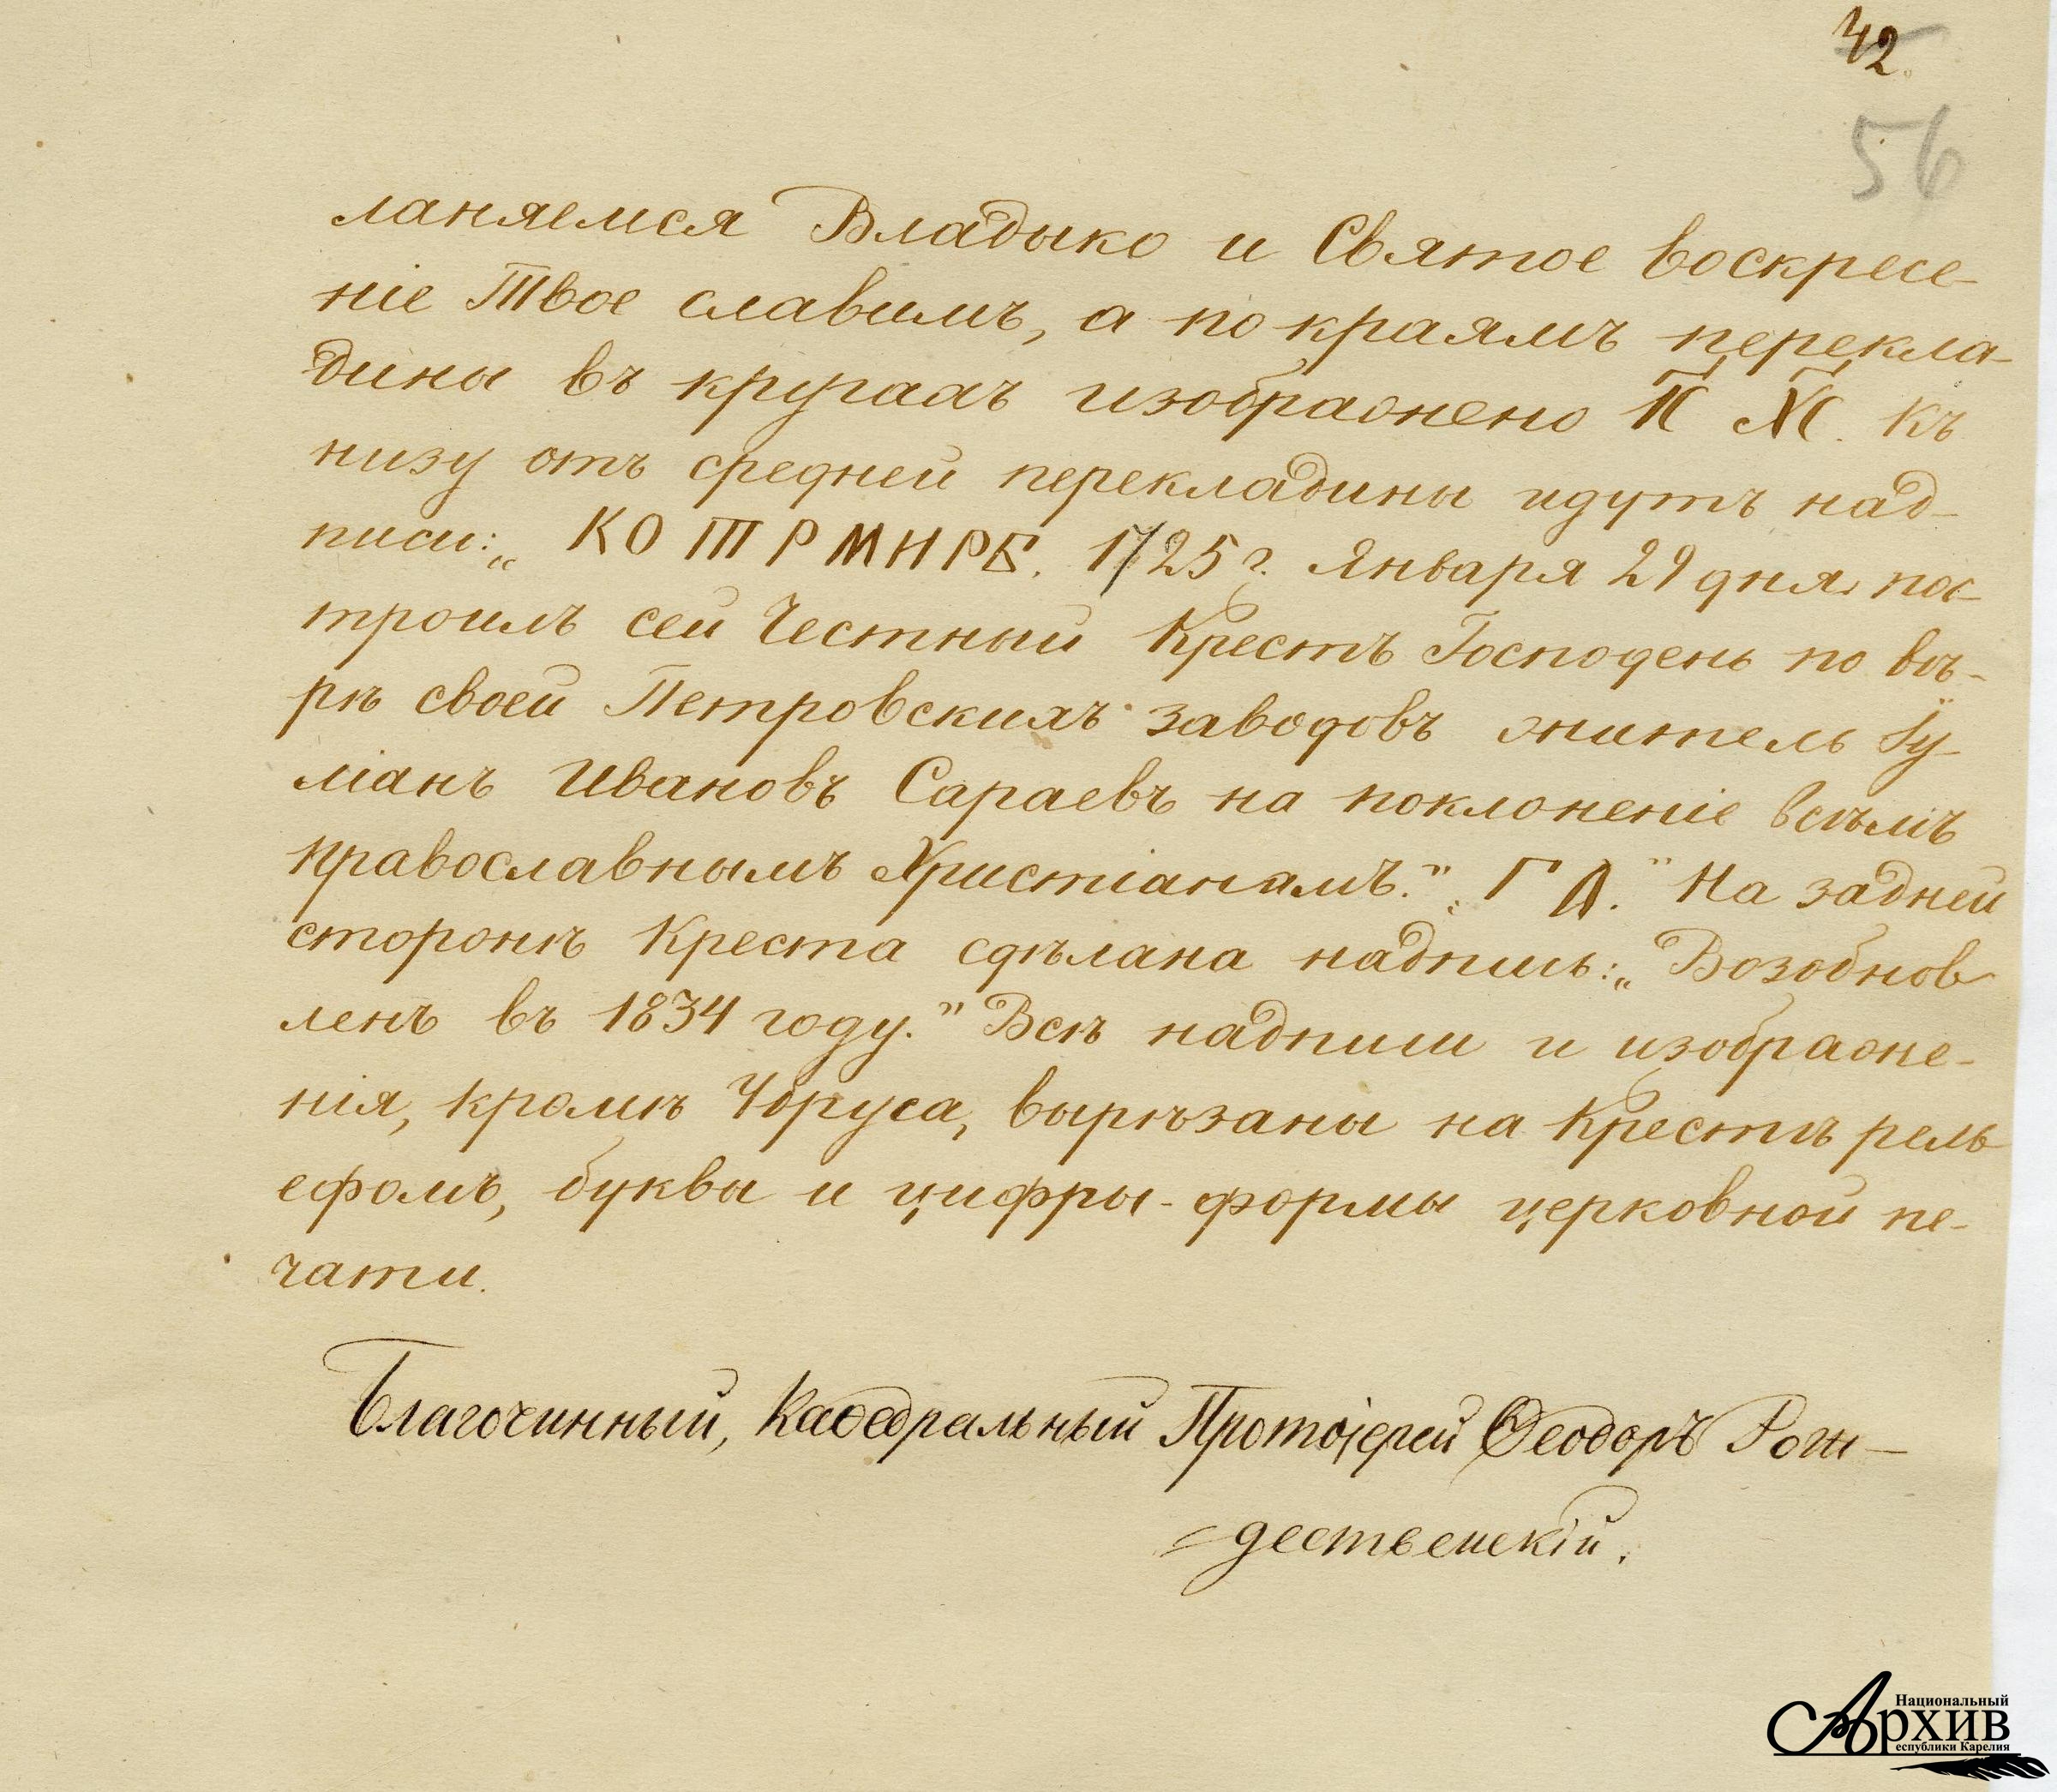 42.
56
ланяемся Владыко и Святое воскресе-
ніе Твое славимъ, а по краямъ перекла-
дины въ кругахъ изображено І҃С Х҃С. Къ
низу отъ средней перекладины идутъ над-
писи: „К О Т Р М Н Р Б. 1725 г. Января 29 дня пос-
троилъ сей Честный Крестъ Господень по вѣ-
рѣ своей Петровскихъ заводовъ житель Iу-
ліанъ Ивановъ Сараевъ на поклоненіе всѣмъ
православнымъ Христіанамъ.” „Г А.” На задней
сторонѣ Креста сдѣлана надпись: „Возобнов
ленъ въ 1834 году.” Всѣ надписи и изображе-
нія, кромѣ Убруса, вырѣзаны на Крестѣ рель
ефомъ, буквы и цифры - формы церковной пе-
чати.
Благочинный, Каѳедральный Протоіерей Ѳеодоръ Рож-
=дественскій.
Национальный
Архив
Республики Карелия